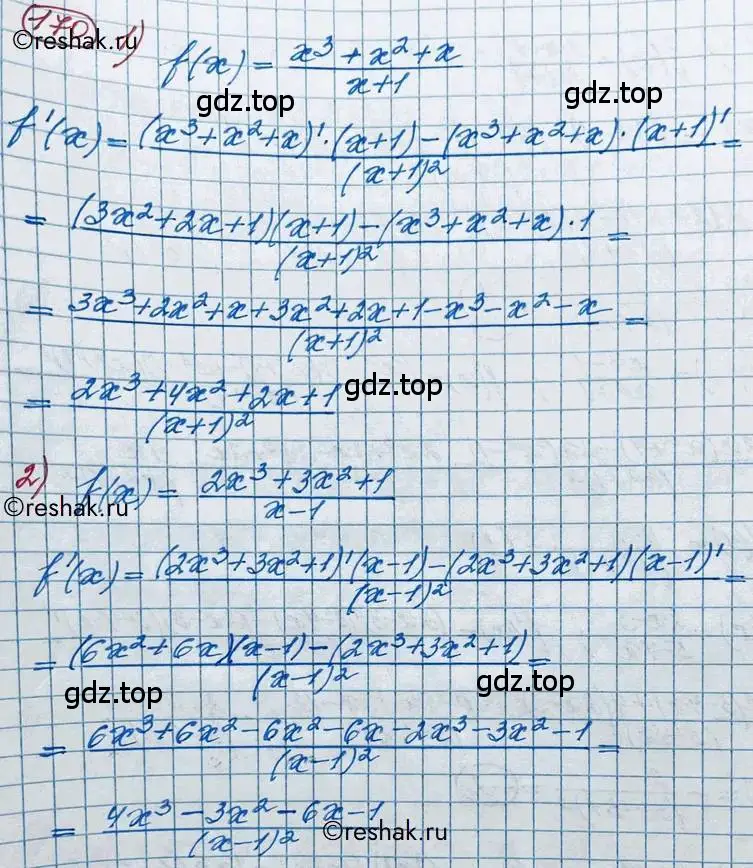 170 1) f(x) = (x³ + x² + x)/(x+1)
©reshak.ru
gdz.top gdz.top
f'(x) = ((x³+x²+x)'·(x+1) − (x³+x²+x)·(x+1)')/(x+1)² =
= ((3x²+2x+1)(x+1) − (x³+x²+x)·1)/(x+1)² =
= (3x³+2x²+x+3x²+2x+1−x³−x²−x)/(x+1)² =
= (2x³+4x²+2x+1)/(x+1)²
gdz.top
2) f(x) = (2x³+3x²+1)/(x−1)
©reshak.ru
f'(x) = ((2x³+3x²+1)'(x−1) − (2x³+3x²+1)(x−1)')/(x−1)² =
= ((6x²+6x)(x−1) − (2x³+3x²+1))/(x−1)² =
gdz.top gdz.top
= (6x³+6x²−6x²−6x−2x³−3x²−1)/(x−1)² =
= (4x³−3x²−6x−1)/(x−1)²
©reshak.ru